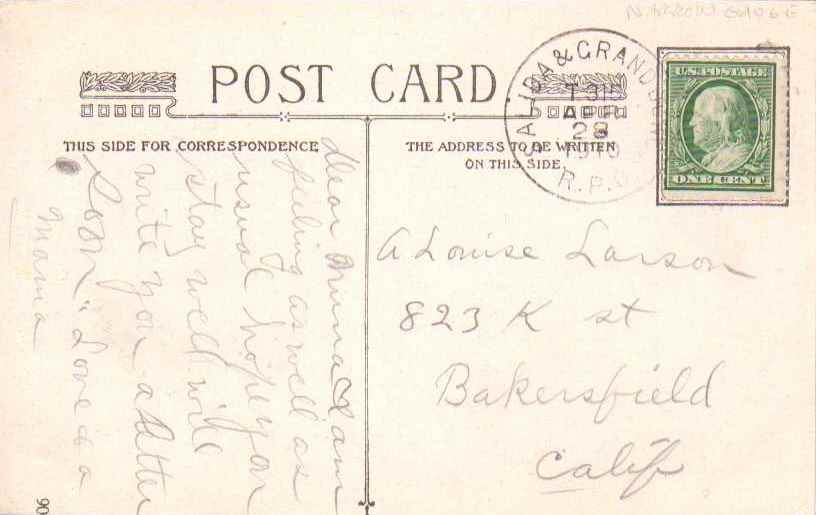 NARROW GAUGE
POST CARD
SALIDA & GRAND JUNC
T 315
APR
28
1910
R.P.O
U.S. POSTAGE
ONE CENT
THIS SIDE FOR CORRESPONDENCE
THE ADDRESS TO BE WRITTEN
ON THIS SIDE.
Dear I am
feeling as well as
usual hope you
stay well will
write you a letter
Soon" Love
Mama
A Louise Larson
823 K st
Bakersfield
Calif
90